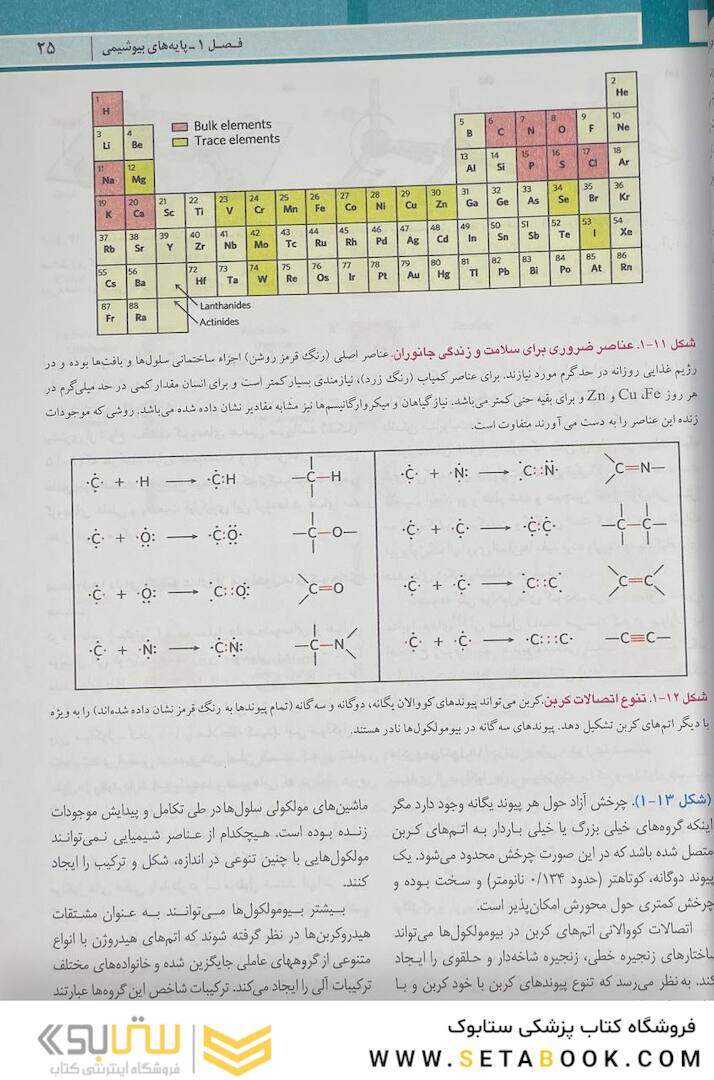 فصل ۱ـ پایه‌های بیوشیمی | ۲۵
Bulk elements
Trace elements
1 H 2 He
3 Li 4 Be 5 B 6 C 7 N 8 O 9 F 10 Ne
11 Na 12 Mg 13 Al 14 Si 15 P 16 S 17 Cl 18 Ar
19 K 20 Ca 21 Sc 22 Ti 23 V 24 Cr 25 Mn 26 Fe 27 Co 28 Ni 29 Cu 30 Zn 31 Ga 32 Ge 33 As 34 Se 35 Br 36 Kr
37 Rb 38 Sr 39 Y 40 Zr 41 Nb 42 Mo 43 Tc 44 Ru 45 Rh 46 Pd 47 Ag 48 Cd 49 In 50 Sn 51 Sb 52 Te 53 I 54 Xe
55 Cs 56 Ba 72 Hf 73 Ta 74 W 75 Re 76 Os 77 Ir 78 Pt 79 Au 80 Hg 81 Tl 82 Pb 83 Bi 84 Po 85 At 86 Rn
87 Fr 88 Ra
Lanthanides
Actinides
شکل ۱۱-۱. عناصر ضروری برای سلامت و زندگی جانوران. عناصر اصلی (رنگ قرمز روشن) اجزاء ساختمانی سلول‌ها و بافت‌ها بوده و در
رژیم غذایی روزانه در حد گرم مورد نیازند. برای عناصر کمیاب (رنگ زرد)، نیازمندی بسیار کمتر است و برای انسان مقدار کمی در حد میلی‌گرم در
هر روز Cu ،Fe و Zn و برای بقیه حتی کمتر می‌باشد. نیاز گیاهان و میکروارگانیسم‌ها نیز مشابه مقادیر نشان داده شده می‌باشد. روشی که موجودات
زنده این عناصر را به دست می‌آورند متفاوت است.
·Ċ· + ·H → ·Ċ:H —C—H
·Ċ· + ·Ö: → ·Ċ:Ö· —C—O—
·Ċ· + ·Ö: → C::O: C=O
·Ċ· + ·N̈: → ·Ċ:N̈: —C—N
·Ċ· + ·N̈: → C::N̈· C=N—
·Ċ· + ·Ċ· → ·Ċ:Ċ· —C—C—
·Ċ· + ·Ċ· → C::C C=C
·Ċ· + ·Ċ· → ·C:::C· —C≡C—
شکل ۱۲-۱. تنوع اتصالات کربن. کربن می‌تواند پیوندهای کووالان یگانه، دوگانه و سه‌گانه (تمام پیوندها به رنگ قرمز نشان داده شده‌اند) را به ویژه
با دیگر اتم‌های کربن تشکیل دهد. پیوندهای سه‌گانه در بیومولکول‌ها نادر هستند.
(شکل ۱۳-۱). چرخش آزاد حول هر پیوند یگانه وجود دارد مگر
اینکه گروه‌های خیلی بزرگ یا خیلی باردار به اتم‌های کربن
متصل شده باشد که در این صورت چرخش محدود می‌شود. یک
پیوند دوگانه، کوتاهتر (حدود ۰/۱۳۴ نانومتر) و سخت بوده و
چرخش کمتری حول محورش امکان‌پذیر است.
اتصالات کووالانی اتم‌های کربن در بیومولکول‌ها می‌تواند
ساختارهای زنجیره خطی، زنجیره شاخه‌دار و حلقوی را ایجاد
کند. به نظر می‌رسد که تنوع پیوندهای کربن با خود کربن و با
ماشین‌های مولکولی سلول‌ها در طی تکامل و پیدایش موجودات
زنده بوده است. هیچکدام از عناصر شیمیایی نمی‌توانند
مولکول‌هایی با چنین تنوعی در اندازه، شکل و ترکیب را ایجاد
کنند.
بیشتر بیومولکول‌ها می‌توانند به عنوان مشتقات
هیدروکربن‌ها در نظر گرفته شوند که اتم‌های هیدروژن با انواع
متنوعی از گروههای عاملی جایگزین شده و خانواده‌های مختلف
ترکیبات آلی را ایجاد می‌کند. ترکیبات شاخص این گروه‌ها عبارتند
ستابوک
فروشگاه اینترنتی کتاب
فروشگاه کتاب پزشکی ستابوک
WWW.SETABOOK.COM